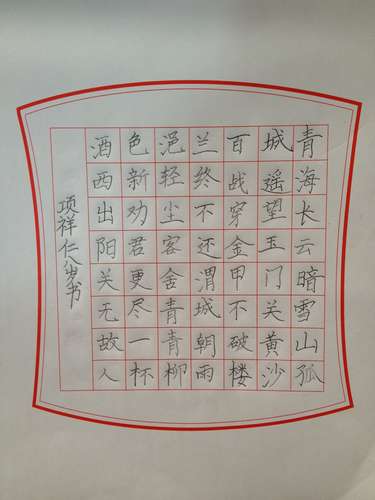 青海长云暗雪山孤
城遥望玉门关黄沙
百战穿金甲不破楼
兰终不还渭城朝雨
浥轻尘客舍青青柳
色新劝君更尽一杯
酒西出阳关无故人
项祥仁八岁书